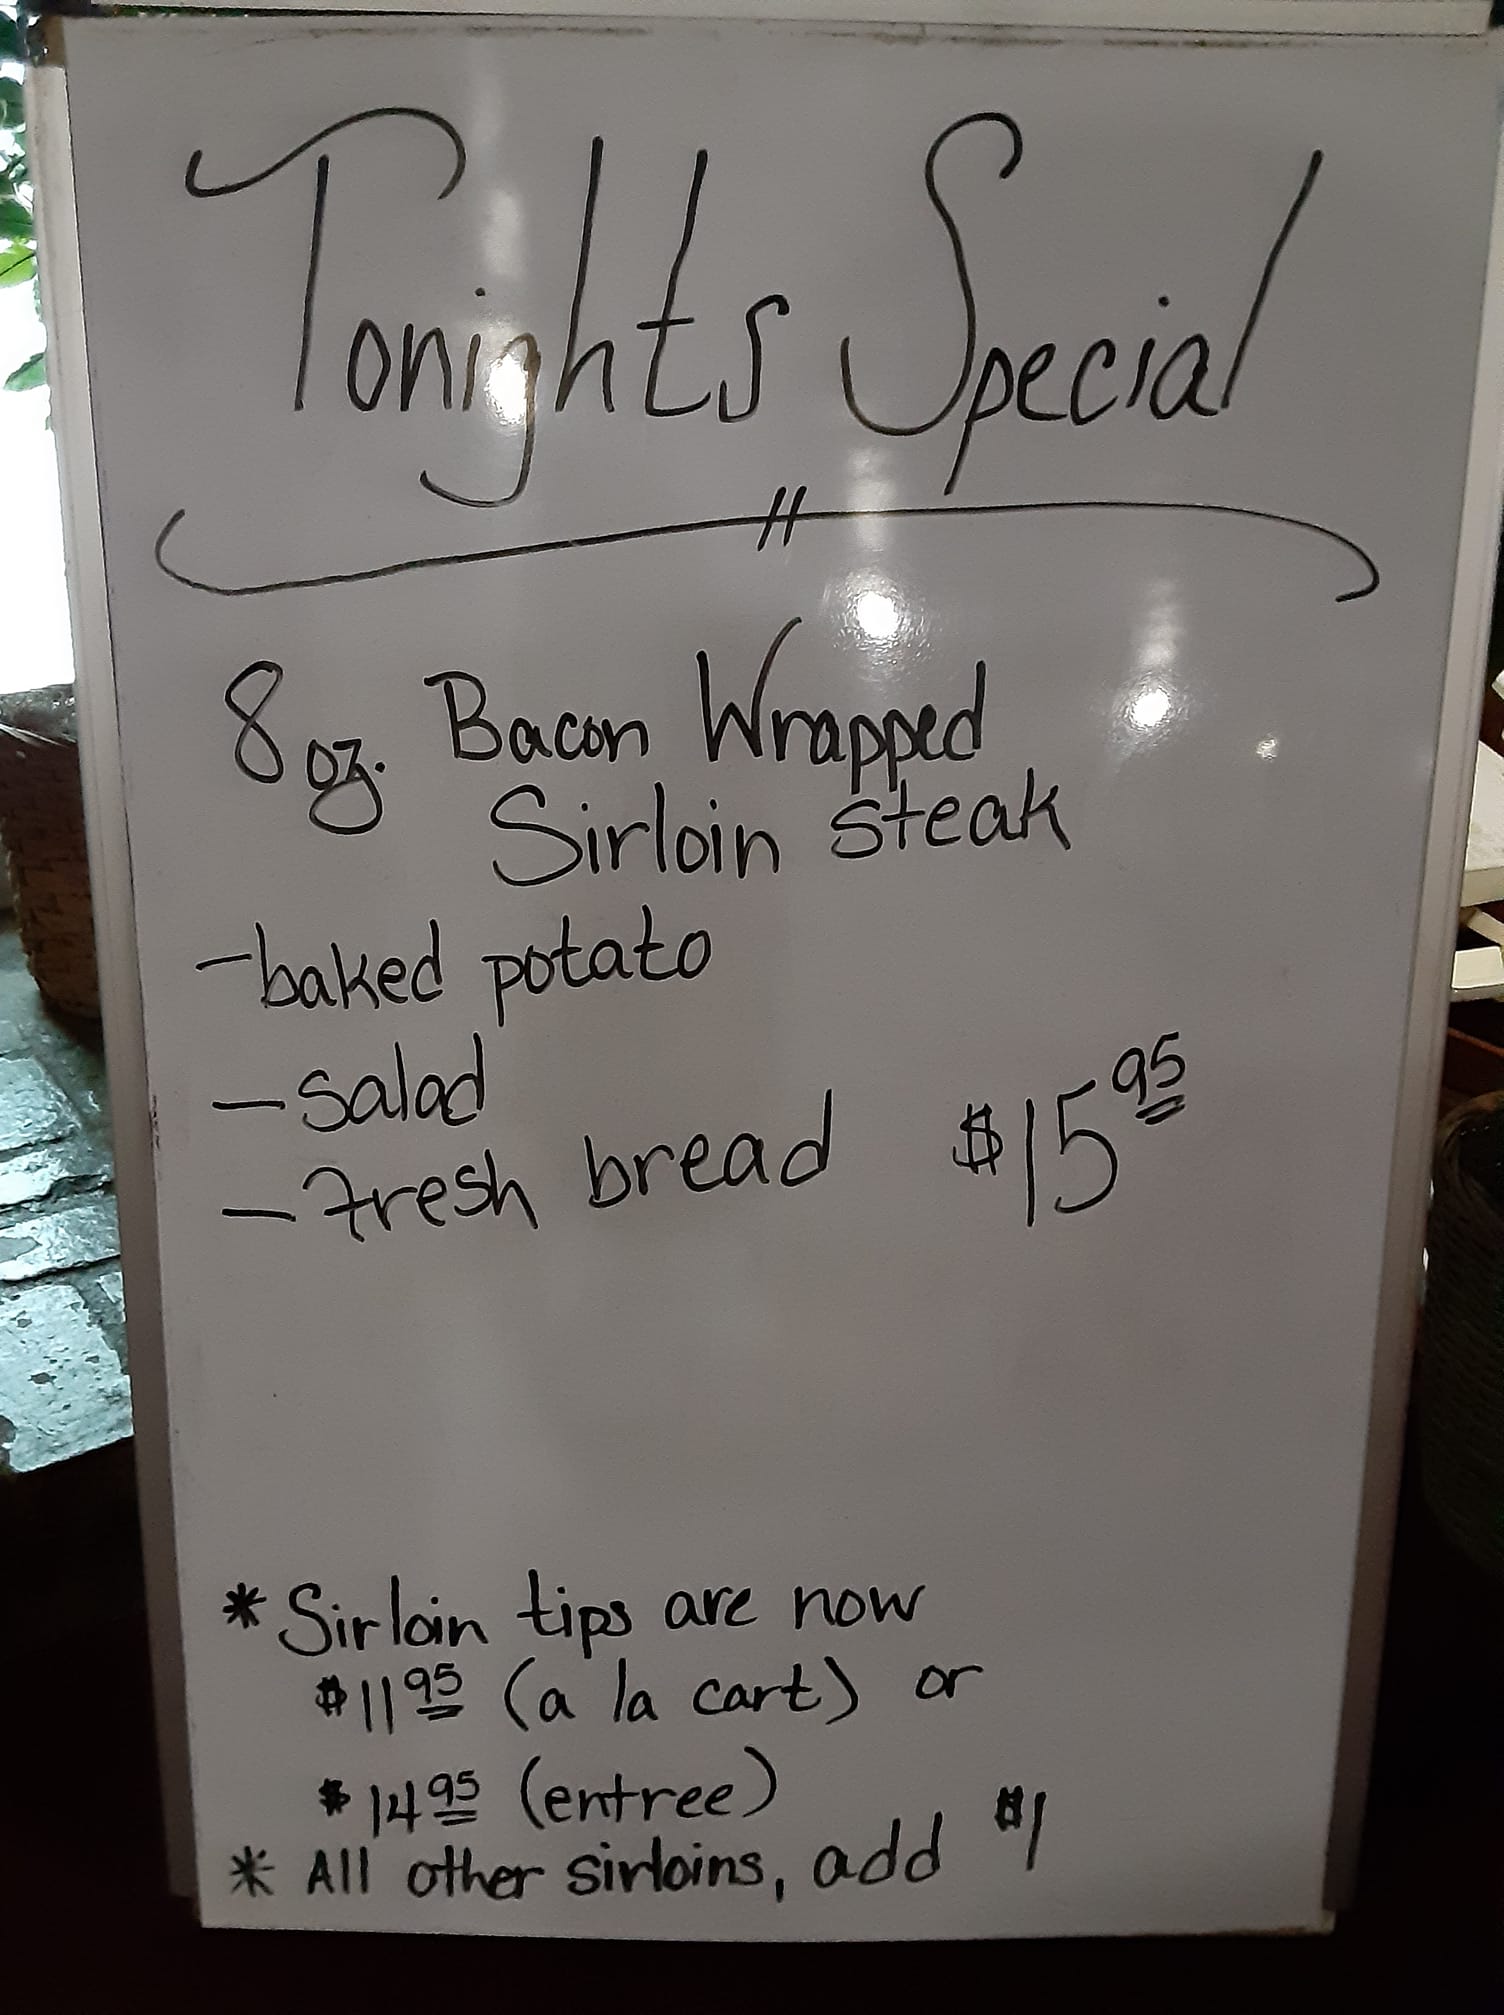 Tonights Special
8 oz. Bacon Wrapped
Sirloin steak
-baked potato
- salad
- fresh bread $15 95
* Sirloin tips are now
$11 95 (a la cart) or
$14 95 (entree)
* All other sirloins, add $1